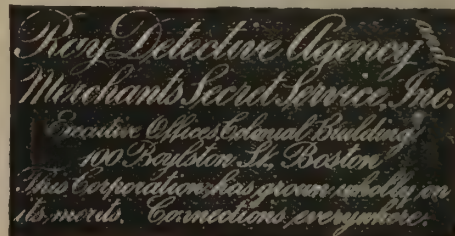 Ray Detective Agency
Merchants Secret Service, Inc.
Executive Offices, Colonial Building
100 Boylston St., Boston
This Corporation has grown wholly on
its merits. Connections everywhere.